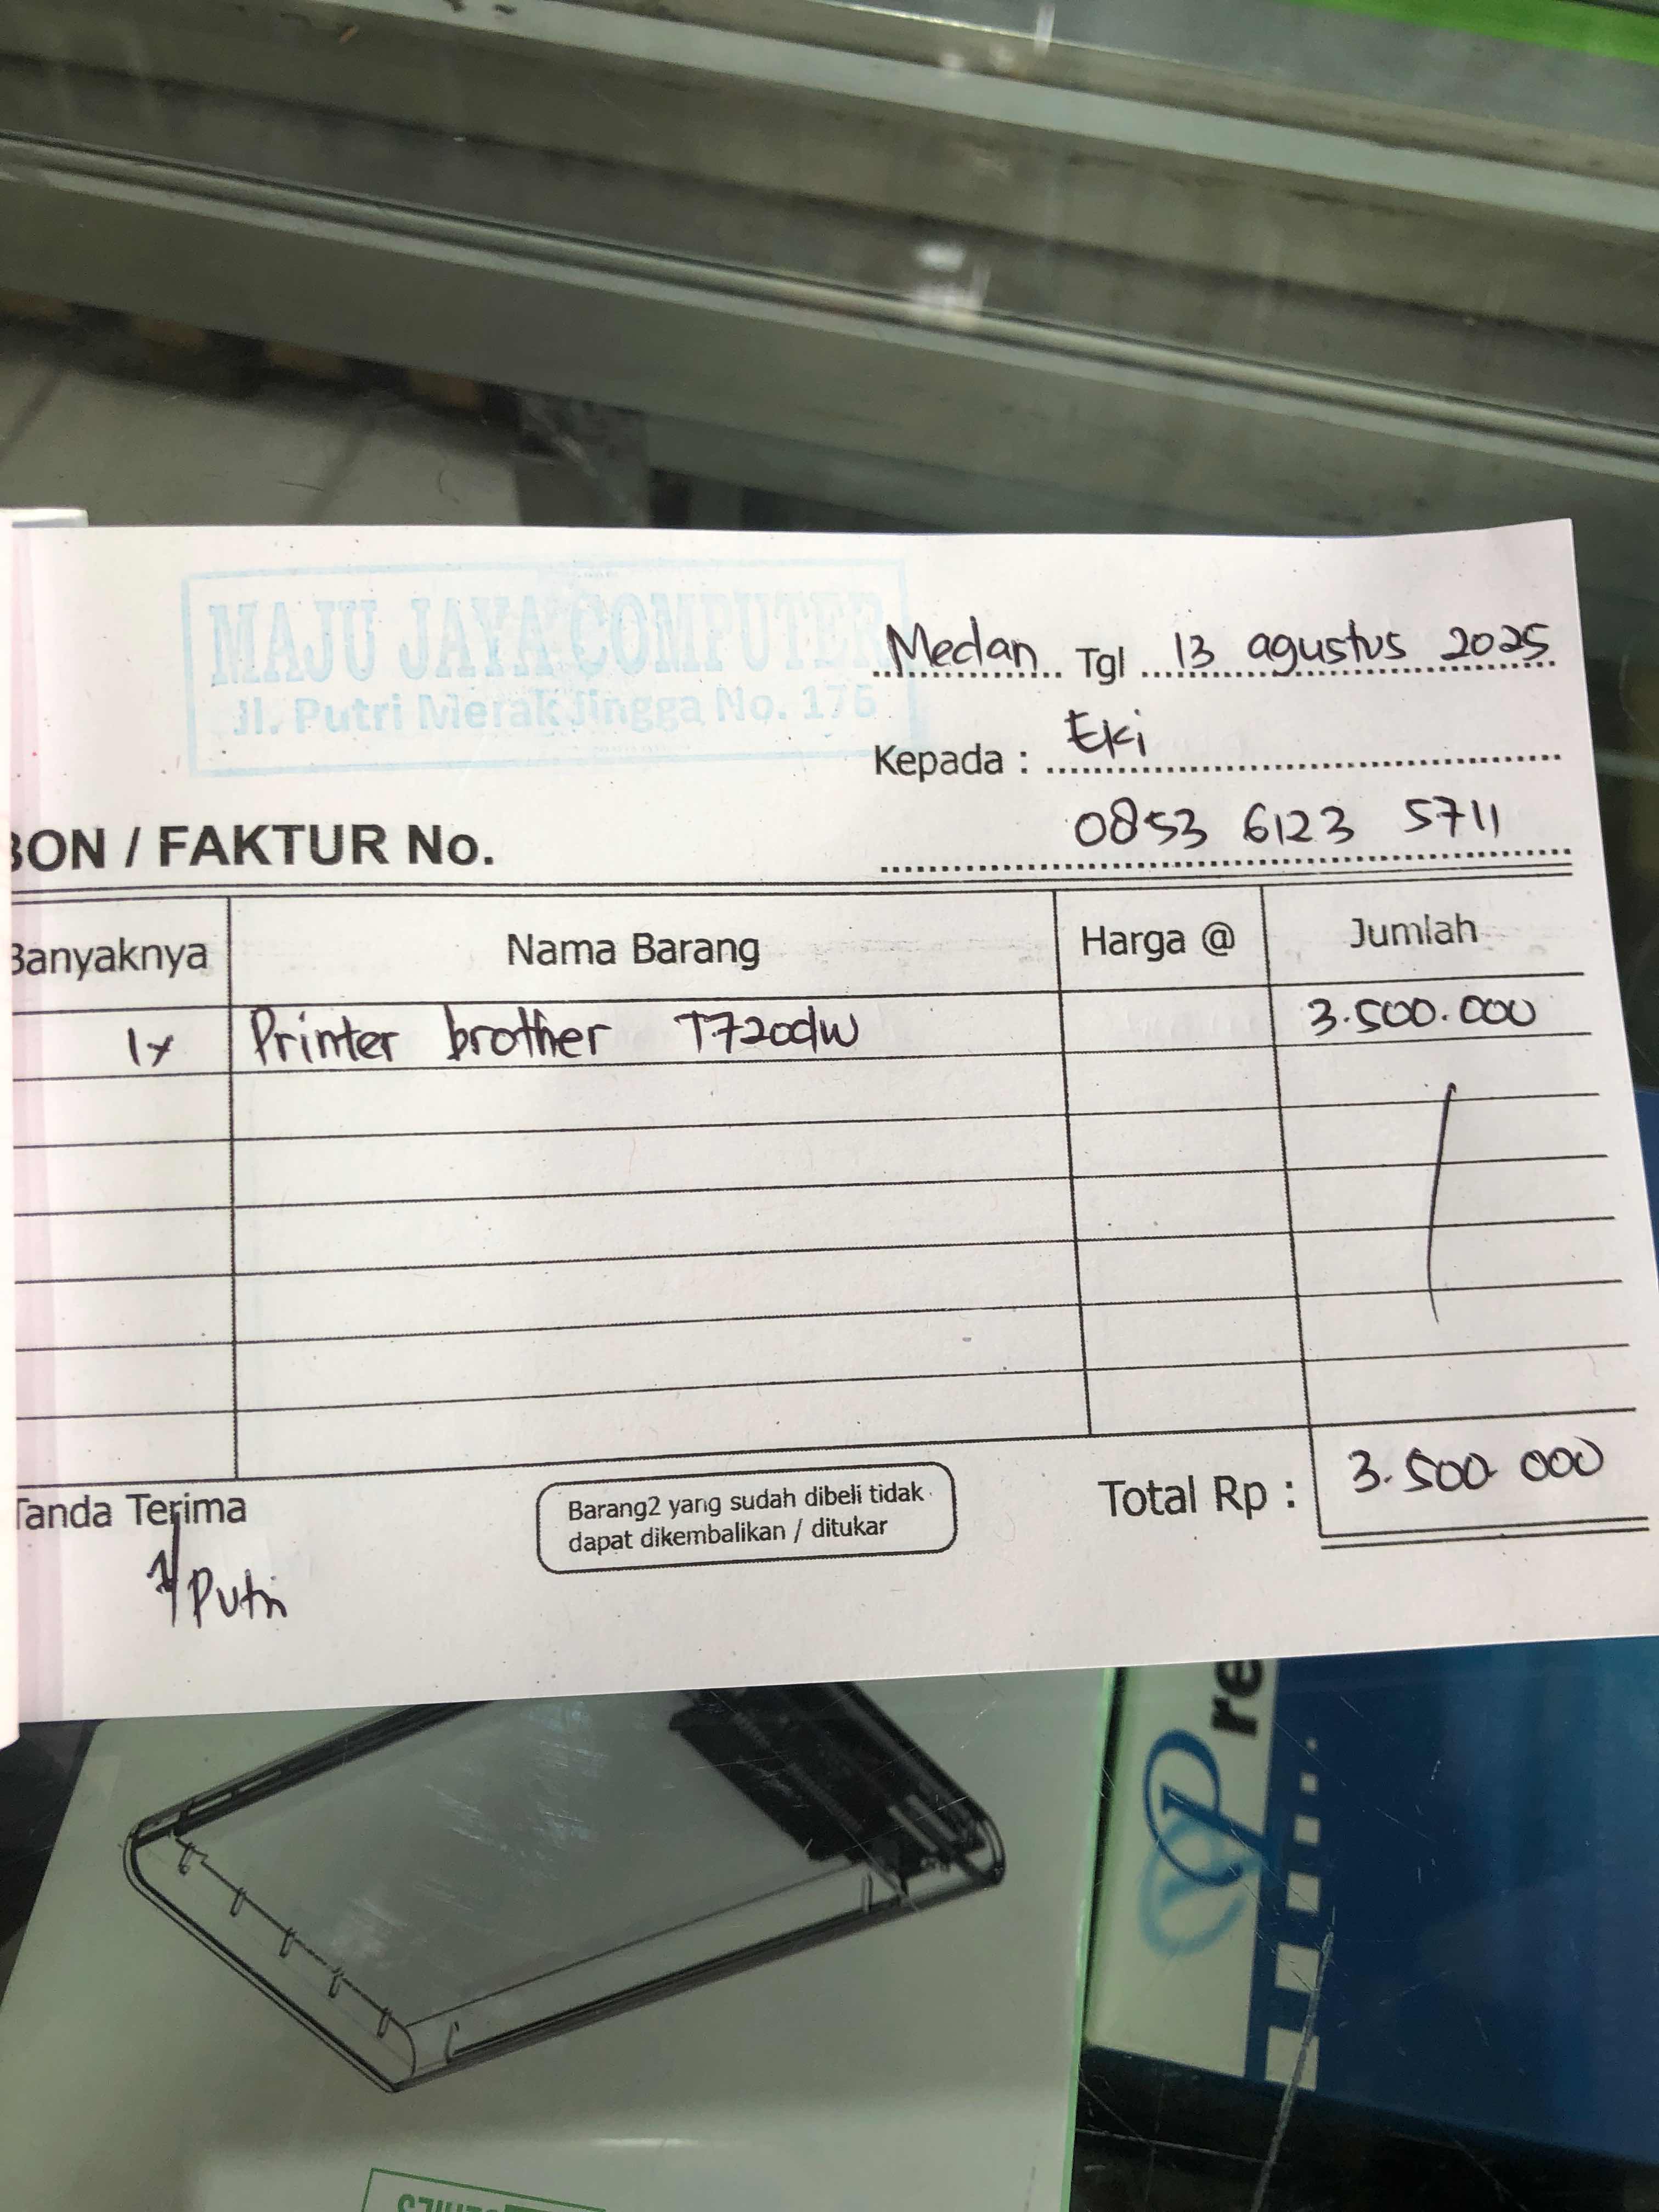 MAJU JAYA COMPUTER
Jl. Putri Merak Jingga No. 176
Medan Tgl 13 agustus 2025
Kepada : Eki
0853 6123 5711
BON / FAKTUR No.
Banyaknya Nama Barang Harga @ Jumlah
1x Printer brother T720dw 3.500.000
Tanda Terima
Putri
Barang2 yang sudah dibeli tidak
dapat dikembalikan / ditukar
Total Rp : 3.500.000
re